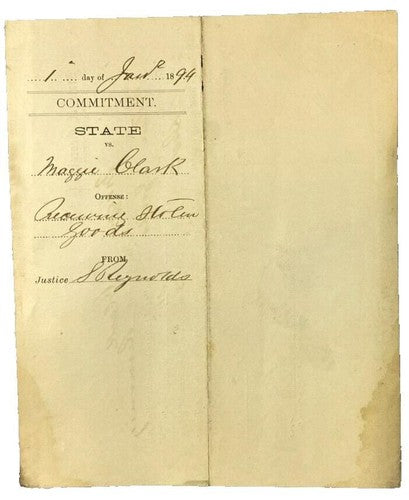 1" day of Jan'y 1894
COMMITMENT.
STATE
vs.
Maggie Clark
OFFENSE:
Receiving Stolen
Goods
FROM
Justice S Reynolds